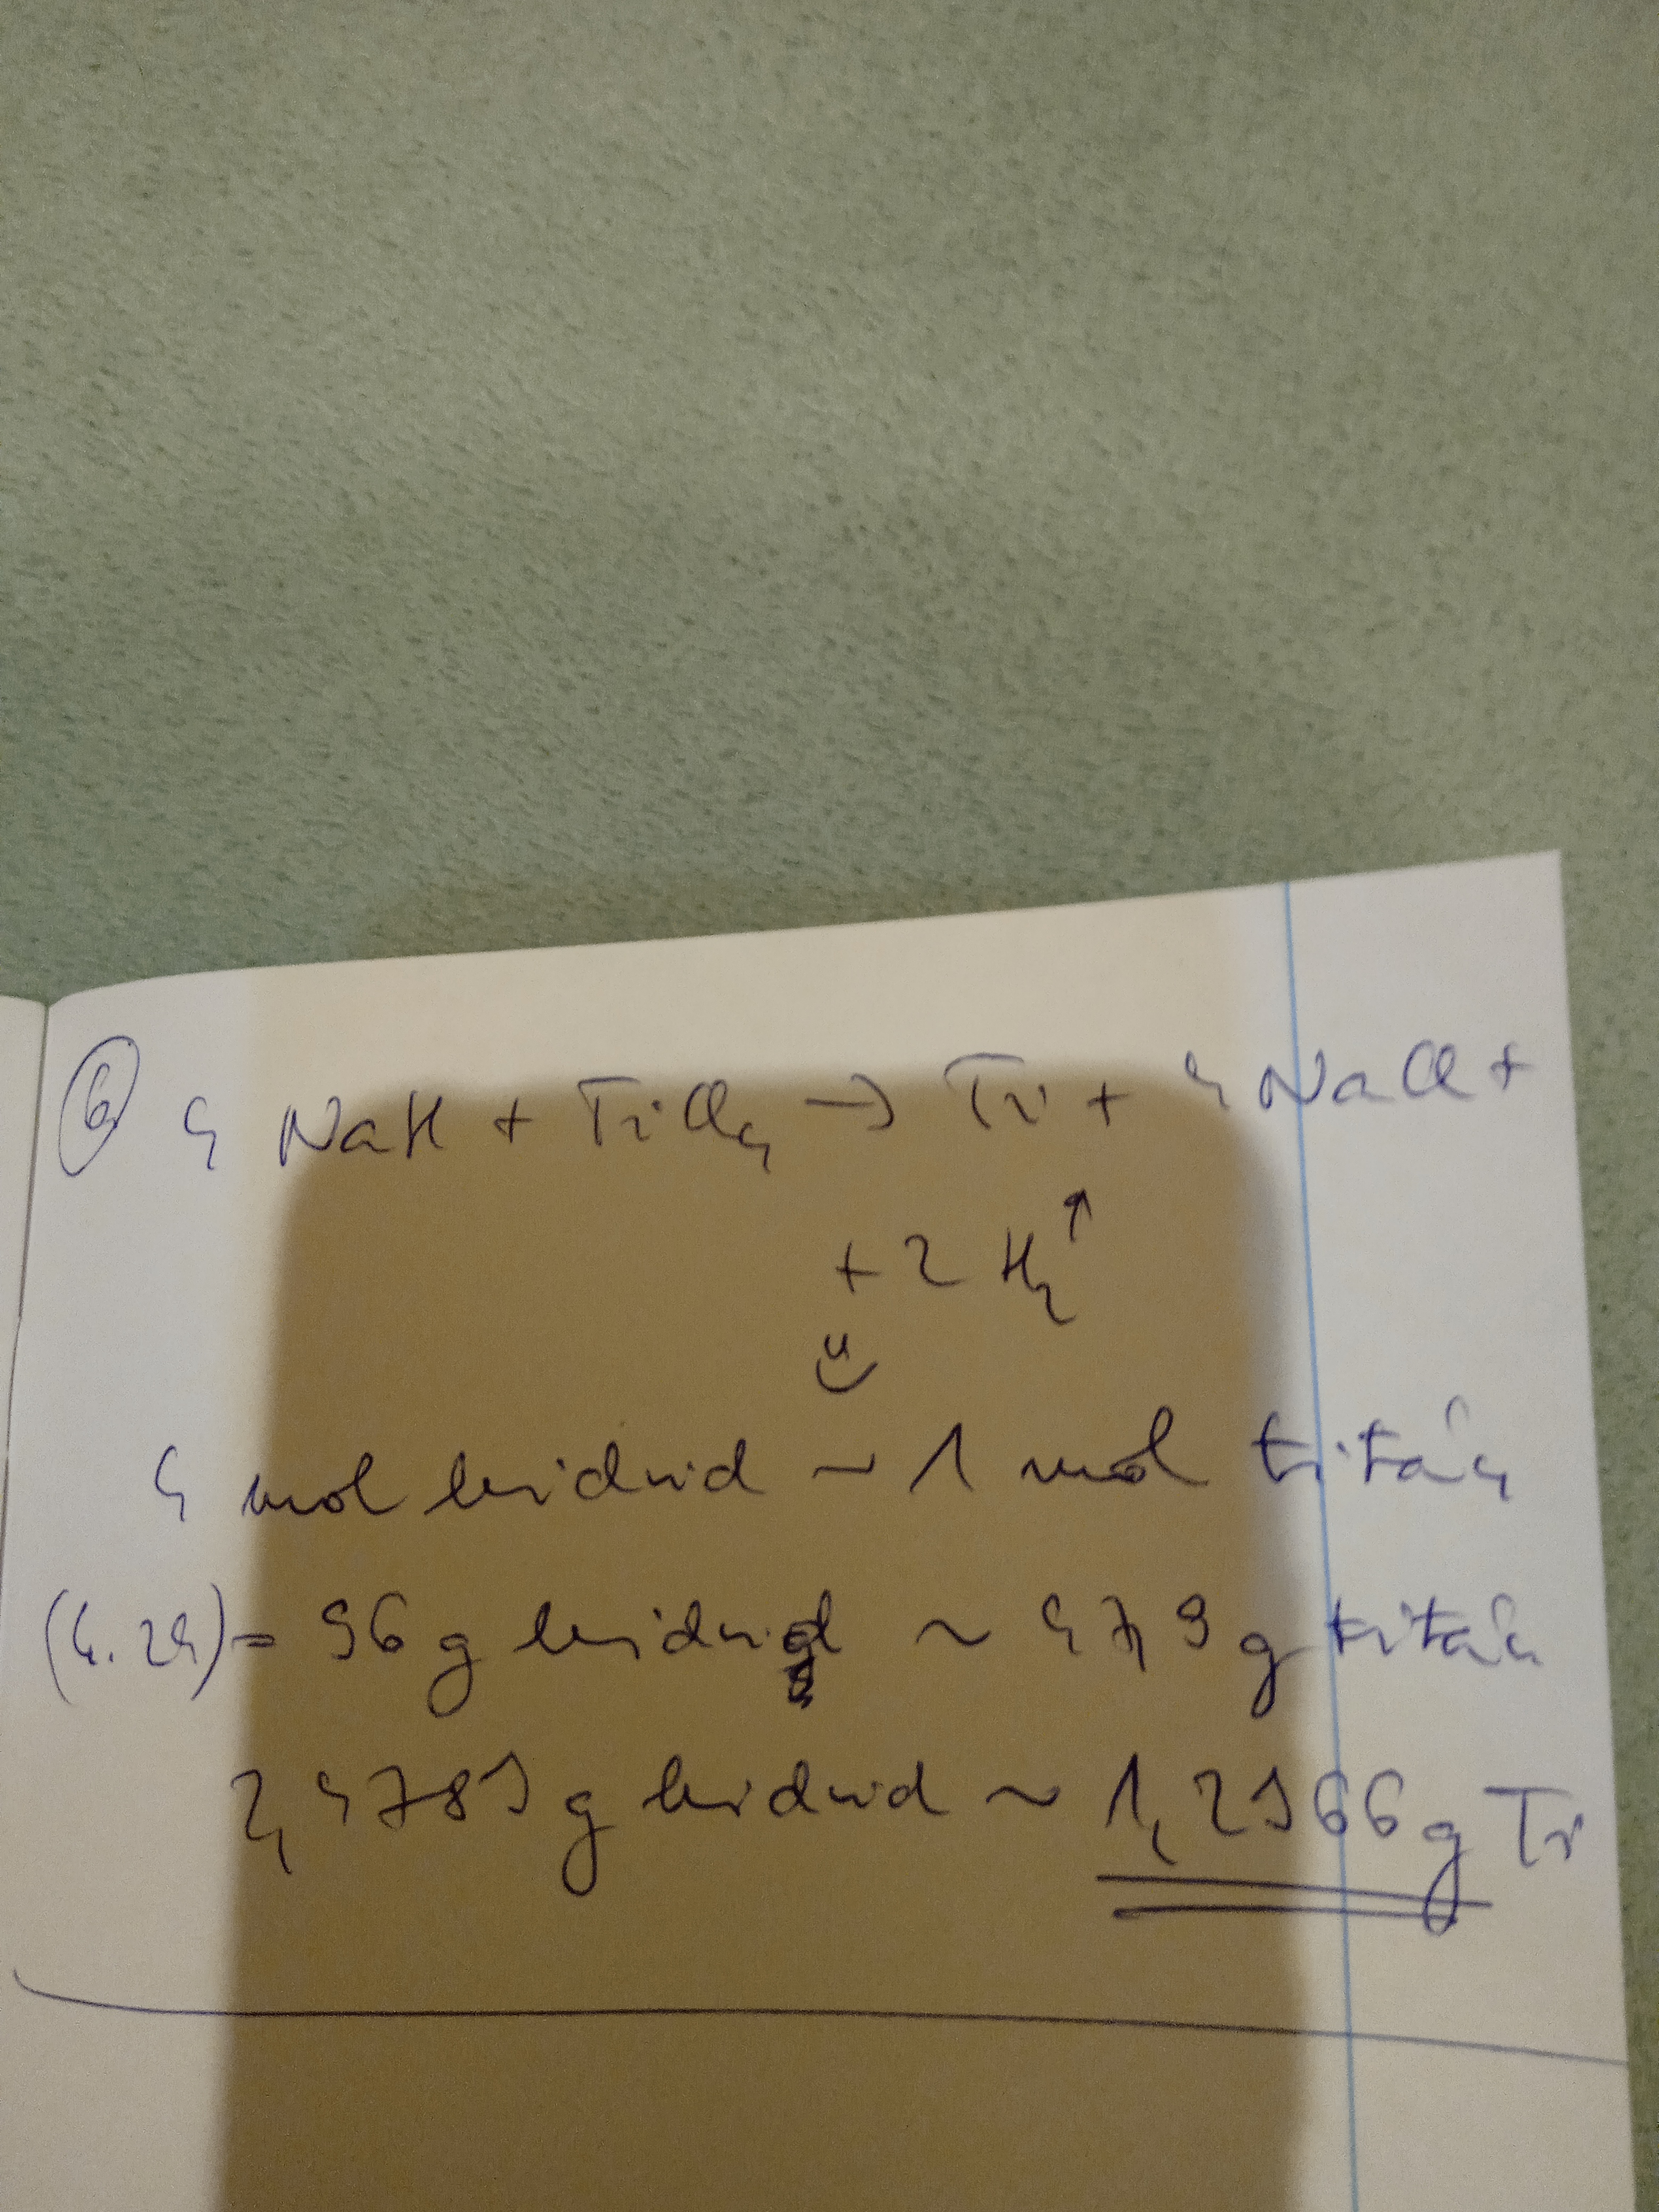 6 4 NaH + TiCl₄ → Ti + 4 NaCl +
+ 2 H₂↑
4 mol hidrid ~ 1 mol titán
(4.24) = 96 g hidrid ~ 47,9 g titán
2,4789 g hidrid ~ 1,2366 g Ti